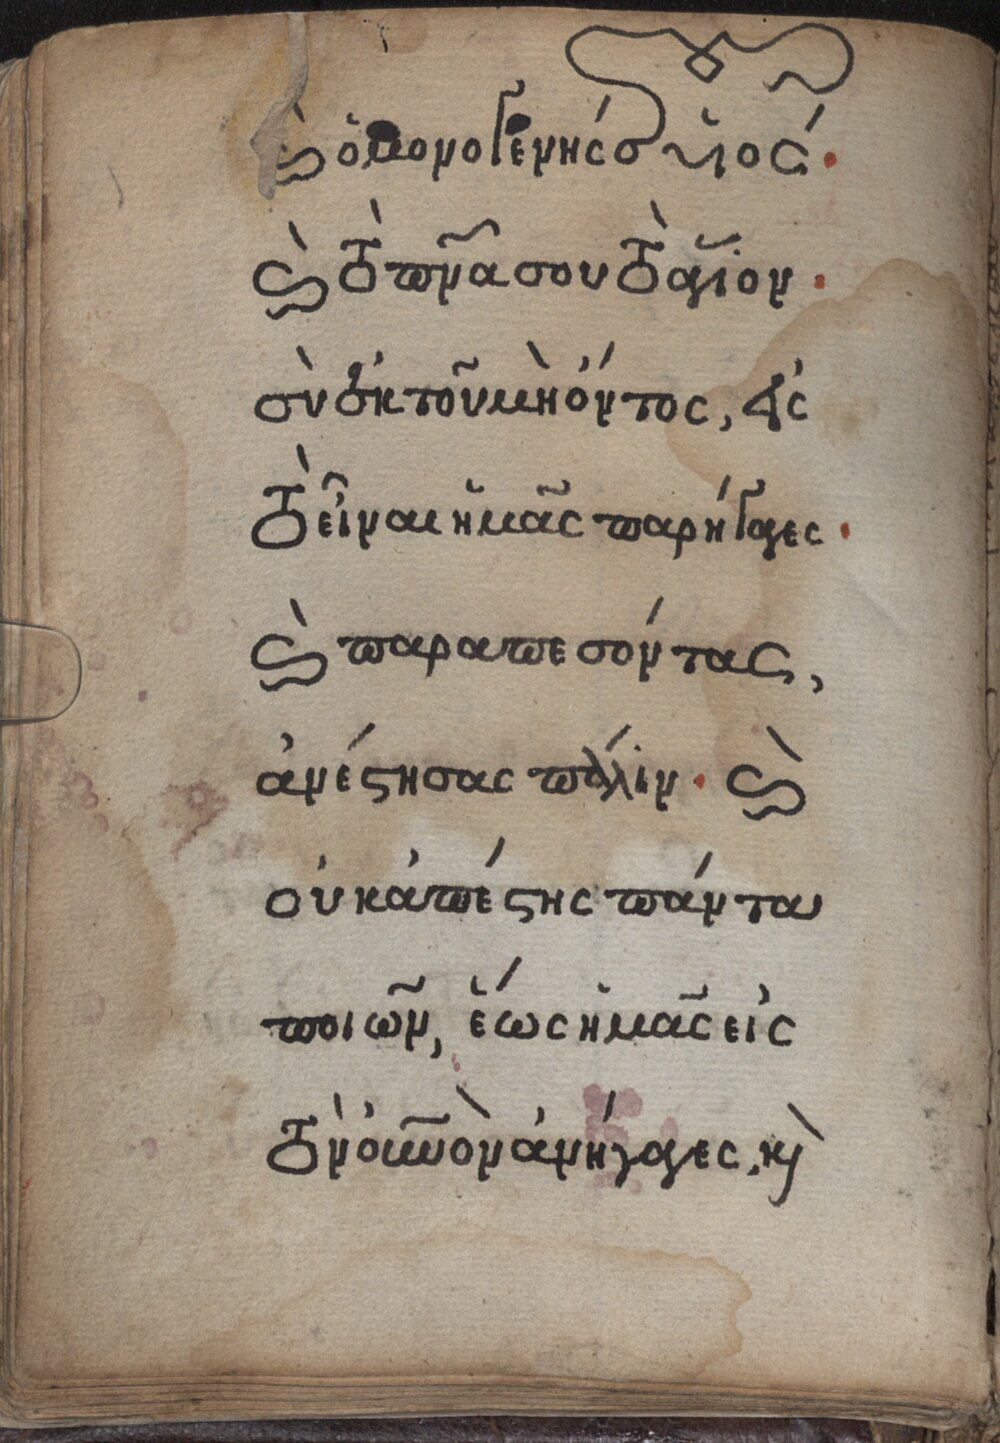 καὶ ὁ μονογενής σου υἱός.
καὶ τὸ πνᾶ σου τὸ ἅγιον.
σὺ ἐκ τοῦ μὴ ὄντος, εἰς
τὸ εἶναι ἡμᾶς παρήγαγες.
καὶ παραπεσόντας,
ἀνέστησας πάλιν. καὶ
οὐκ ἀπέστης πάντα
ποιῶν, ἕως ἡμᾶς εἰς
τὸν οὐνὸν ἀνήγαγες, καὶ